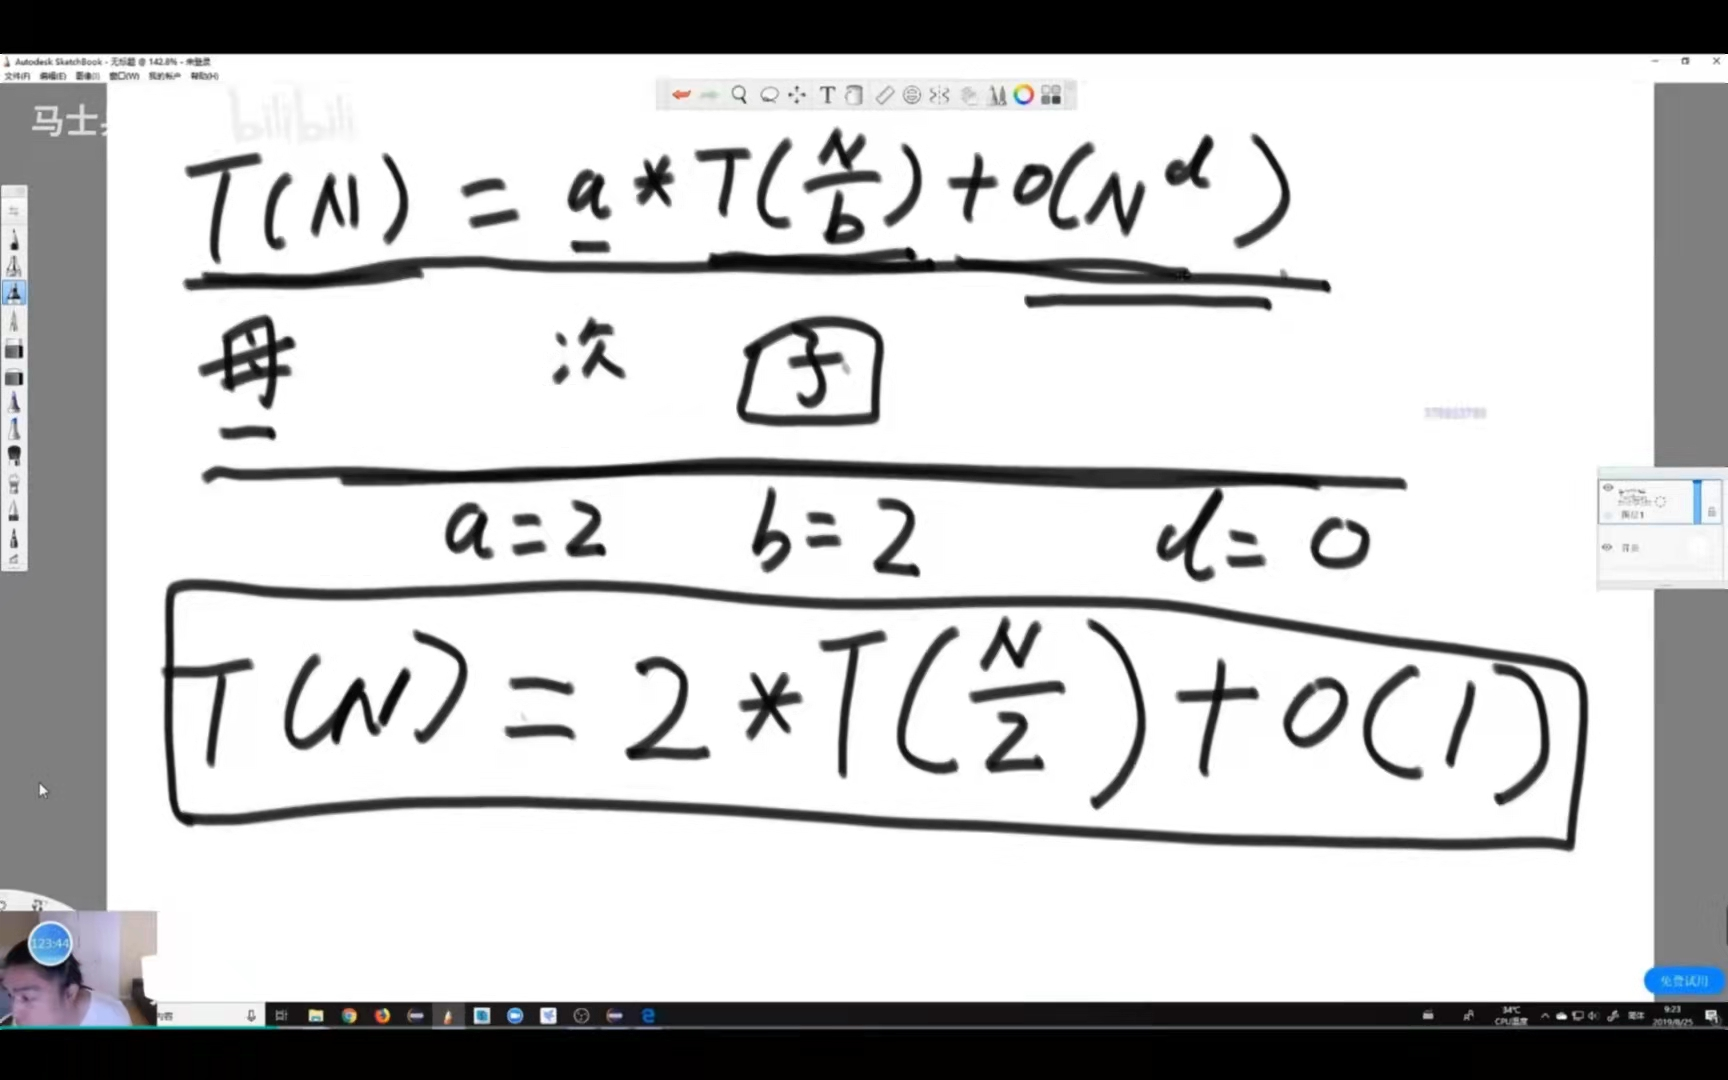 Autodesk SketchBook - 无标题 @ 142.8% - 未登录
文件(F) 编辑(E) 图像(I) 窗口(W) 我的帐户 帮助(H)
马士 bilibili
T(N) = a * T(N/b) + O(N^d)
母 次 子
图层1
背景
a = 2 b = 2 d = 0
T(N) = 2 * T(N/2) + O(1)
123:44
免费试用
34℃
CPU温度
简体
9:23
2019/8/25